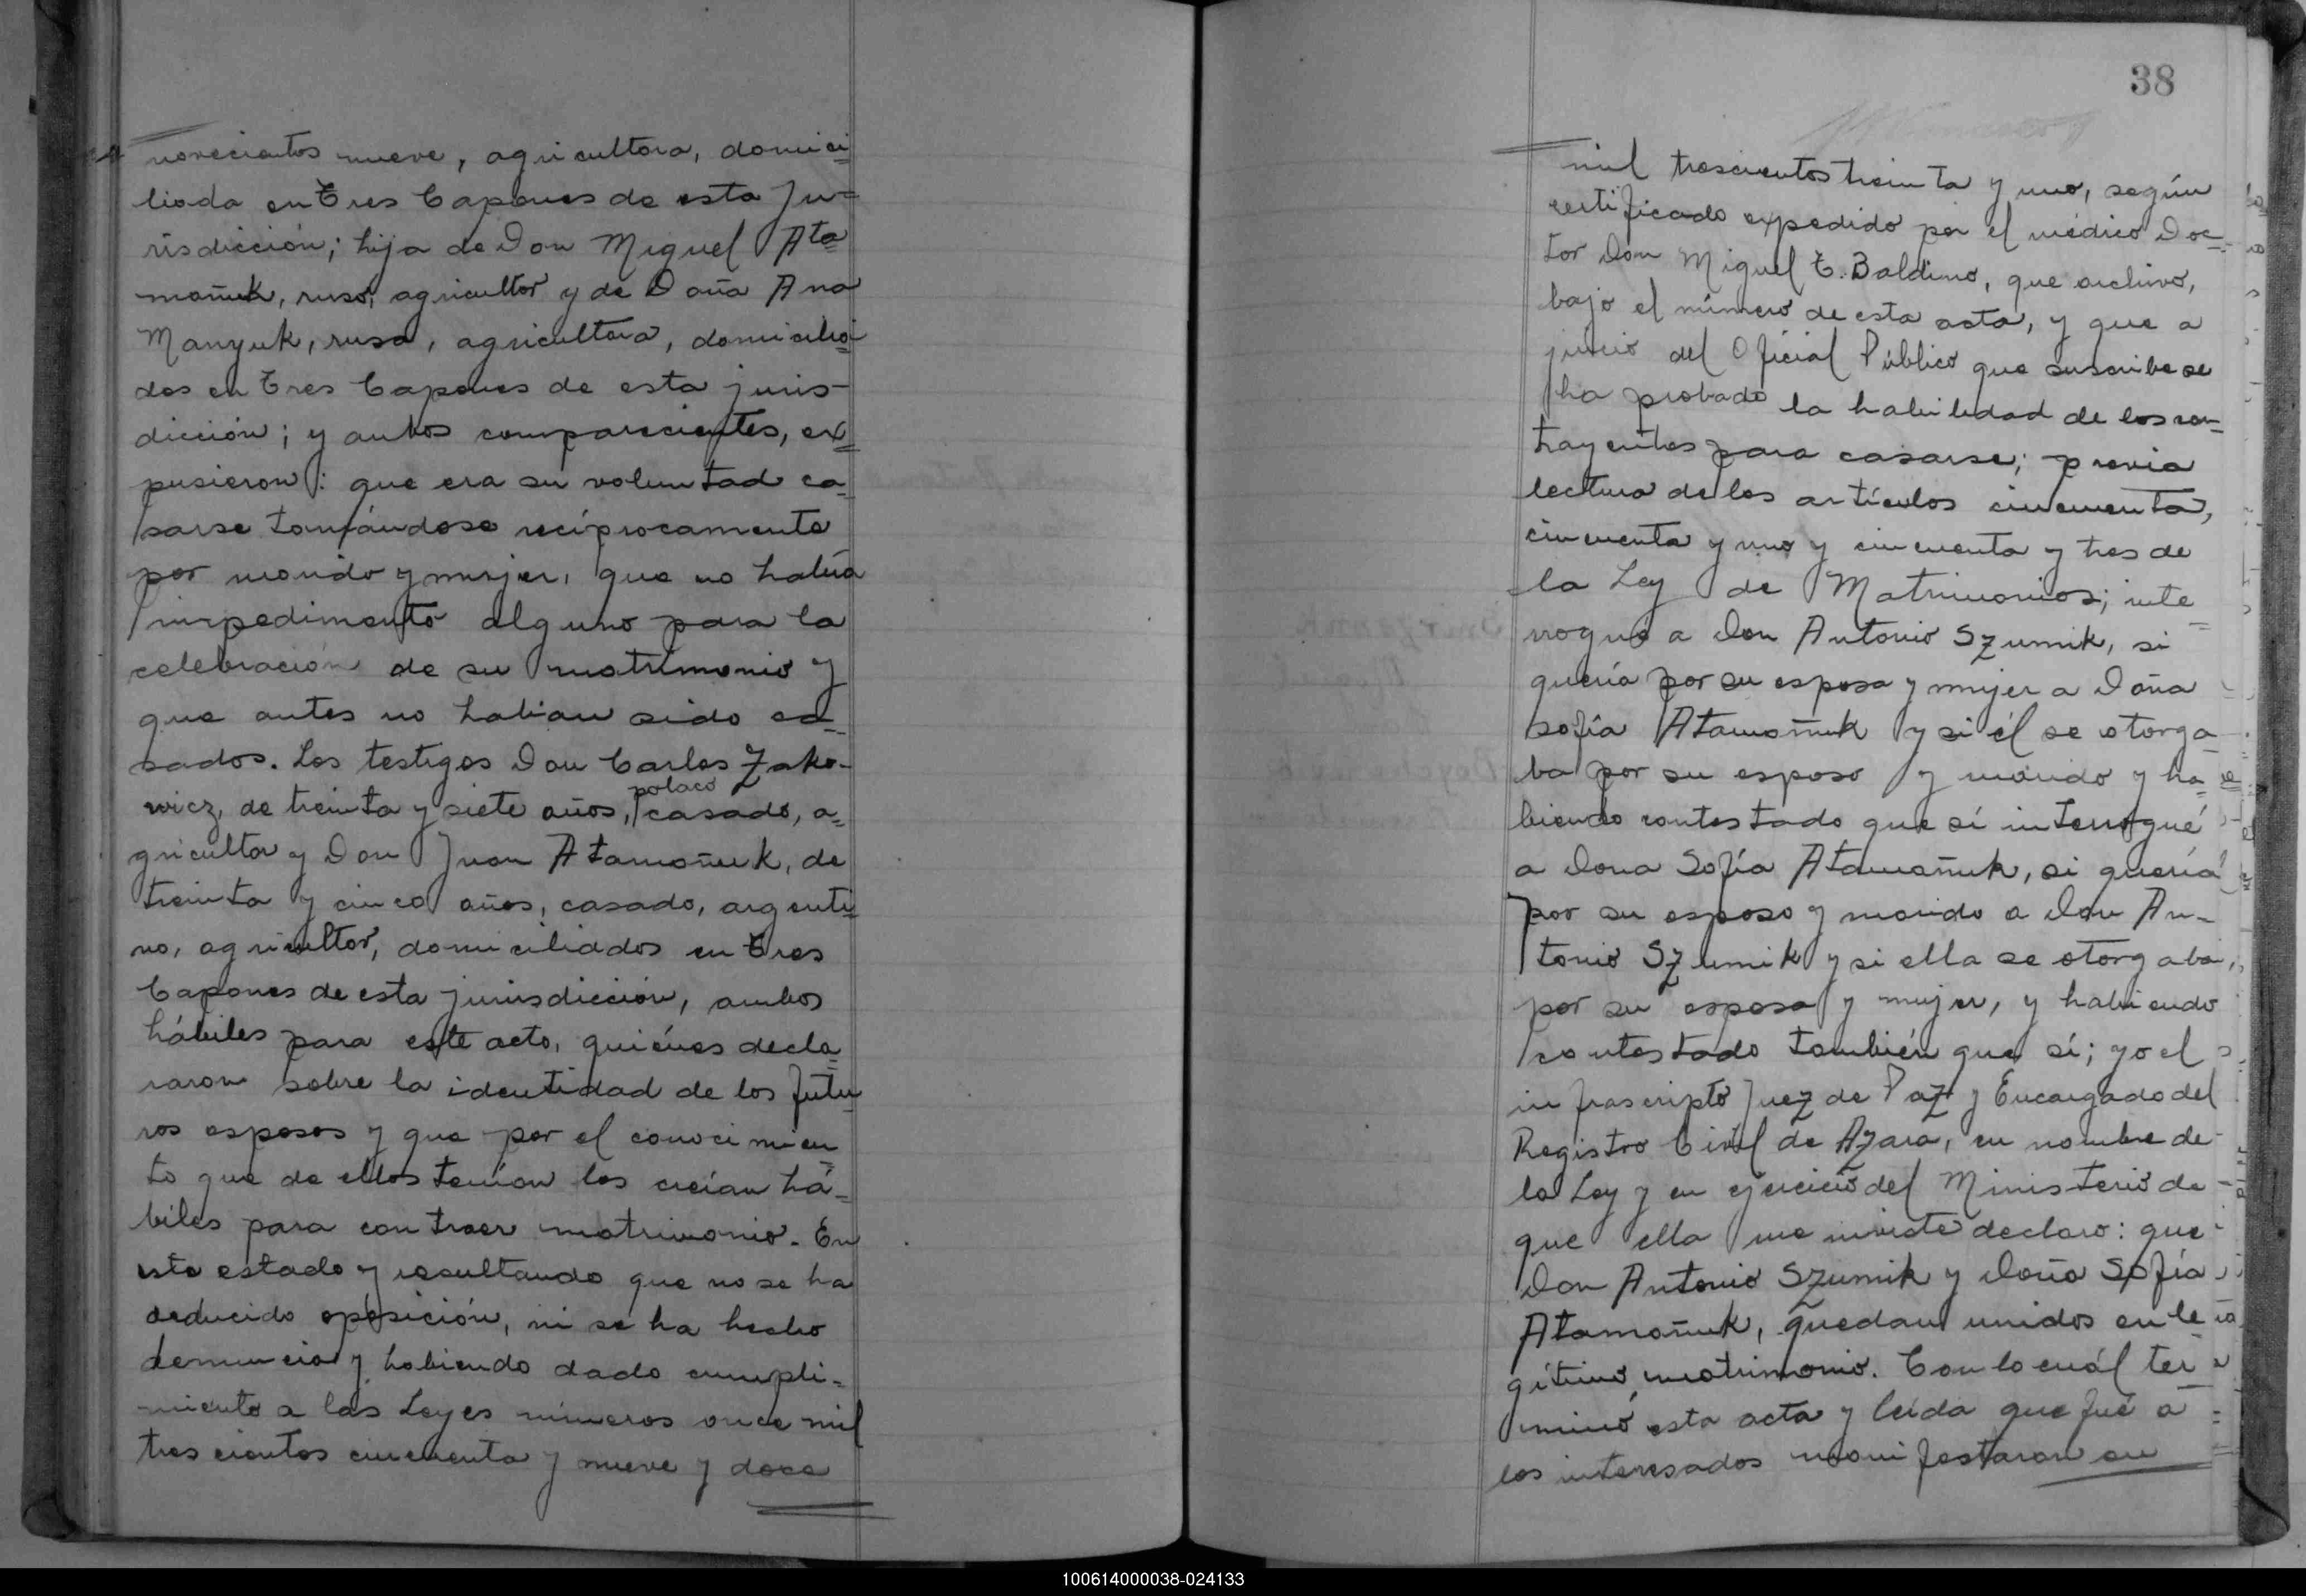 novecientos nueve, agricultora, domici=
liada en Tres Capones de esta Ju=
risdicción; hija de Don Miguel Ata=
mañuk, ruso, agricultor y de Doña Ana
Manyuk, rusa, agricultora, domicilia=
dos en Tres Capones de esta juris-
dicción; y ambos comparecientes, ex=
pusieron: que era su voluntad ca=
sarse tomándose recíprocamente
por marido y mujer, que no había
impedimento alguno para la
celebración de su matrimonio y
que antes no habian sido ca=
sados. Los testigos Don Carlos Zako-
wicz, de treinta y siete años, polaco casado, a=
gricultor y Don Juan Atamañuk, de
treinta y cinco años, casado, argenti=
no, agricultor, domiciliados en Tres
Capones de esta jurisdicción, ambos
hábiles para este acto, quiénes decla=
raron sobre la identidad de los futu=
ros esposos y que por el conocimien=
to que de ellos tenían los creían há=
biles para contraer matrimonio. En
este estado y resultando que no se ha
deducido oposición, ni se ha hecho
denuncia y habiendo dado cumpli=
miento a las Leyes números once mil
trescientos cincuenta y nueve y doce
38
mil trescientos treinta y uno, según
certificado expedido por el médico Doc=
tor Don Miguel T. Baldino, que archivo,
bajo el número de esta acta, y que a
juicio del Oficial Público que suscribe se
ha probado la habilidad de los con=
trayentes para casarse; previa
lectura de los artículos cincuenta,
cincuenta y uno y cincuenta y tres de
la Ley de Matrimonios; inte=
rrogué a Don Antonio Szumik, si
quería por su esposa y mujer a Doña
Sofía Atamañuk y si él se otorga=
ba por su esposo y marido y ha=
biendo contestado que sí interrogué
a Dona Sofía Atamañuk, si quería
por su esposo y marido a Don An-
tonio Szumik y si ella se otorgaba,
por su esposa y mujer, y habiendo
contestado también que sí; yo el
infrascripto Juez de Paz y Encargado del
Registro Civil de Azara, en nombre de
la Ley y en ejercicio del Ministerio de
que ella me inviste declaro: que
Don Antonio Szumik y Doña Sofía
Atamañuk, quedan unidos en le=
gítimo matrimonio. Con lo cuál ter=
minó esta acta y leída que fué a
los interesados manifestaron su
100614000038-024133